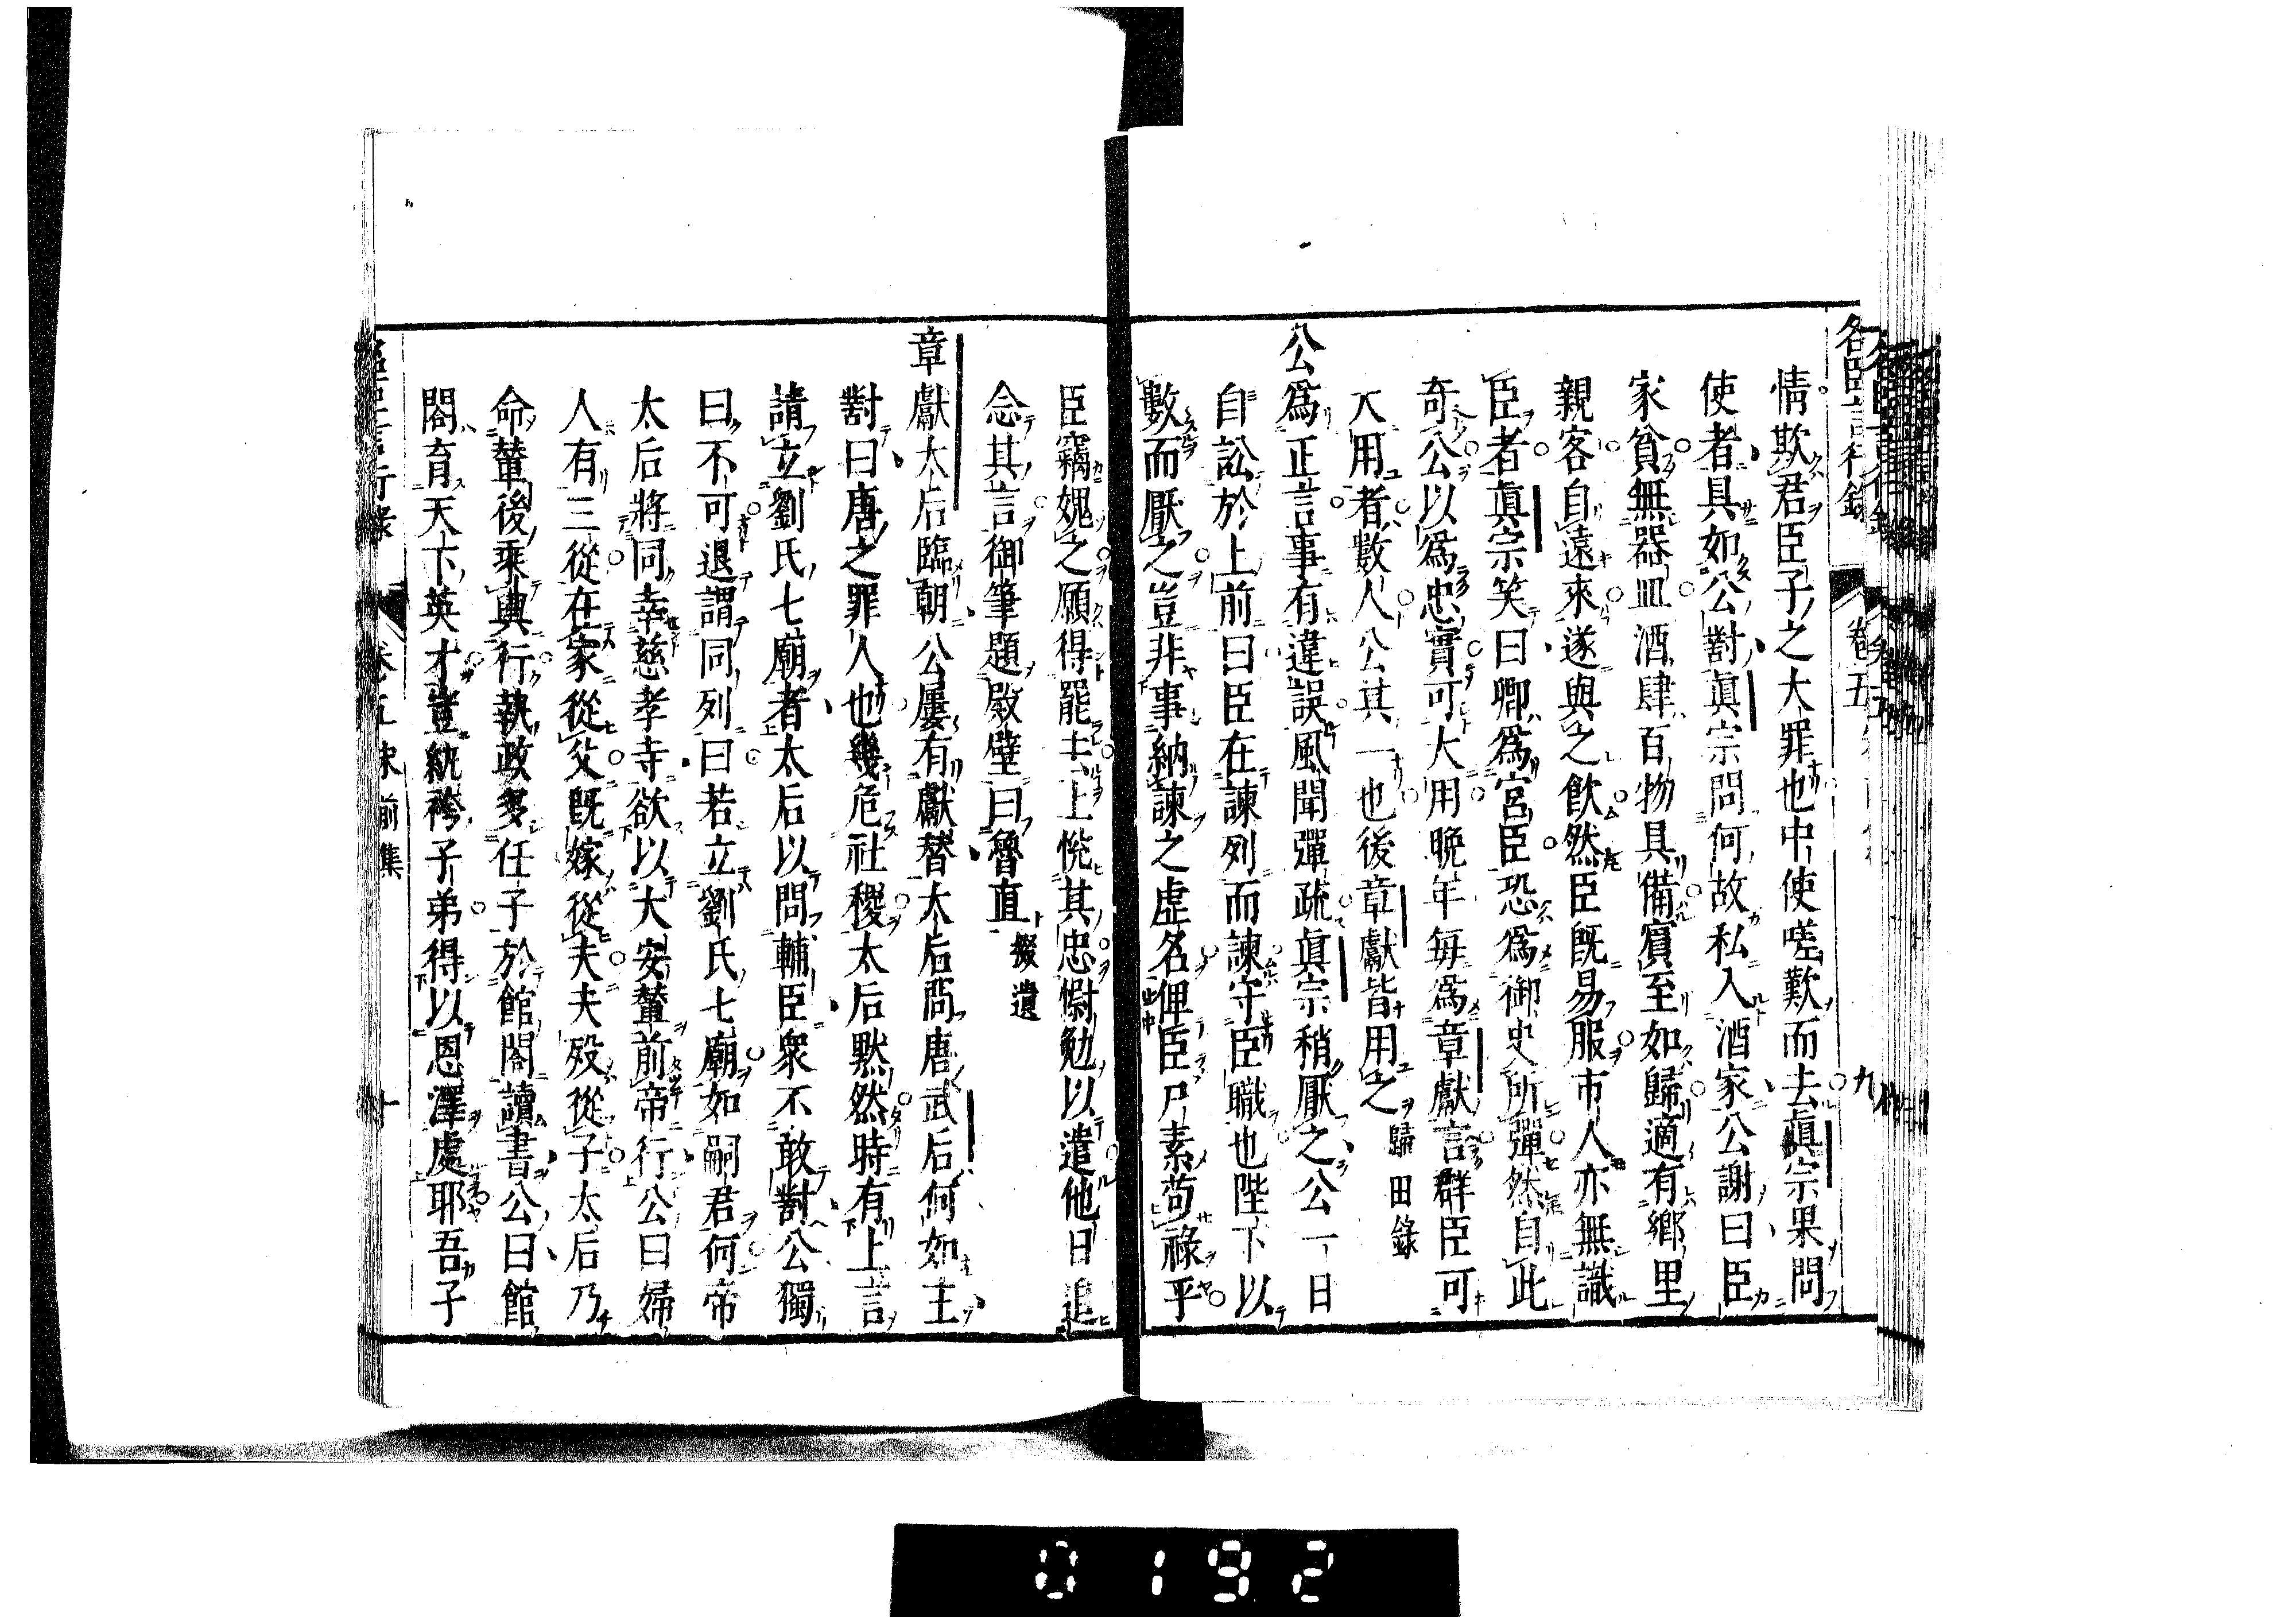 名臣言行錄 卷五 九
情欺君臣子之大罪也中使嗟歎而去眞宗果問
使者具如公對眞宗問何故私入酒家公謝曰臣
家貧無器皿酒肆百物具備賓至如歸適有鄉里
親客自遠來遂與之飮然臣旣易服市人亦無識
臣者眞宗笑曰卿爲宮臣恐爲御史所彈然自此
奇公以爲忠實可大用晩年每爲章獻言群臣可
大用者數人公其一也後章獻皆用之歸田錄
公爲正言事有違誤風聞彈疏眞宗稍厭之公一日
自訟於上前曰臣在諫列而諫守臣職也陛下以
數而厭之豈非事納諫之虛名俾臣尸素苟祿乎
臣竊媿之願得罷去上悅其忠慰勉以遣他日追
念其言御筆題殿壁曰魯直掇遺
章獻太后臨朝公屢有獻替太后問唐武后何如主
對曰唐之罪人也幾危社稷太后默然時有上言
請立劉氏七廟者太后以問輔臣衆不敢對公獨
曰不可退謂同列曰若立劉氏七廟如嗣君何帝
太后將同幸慈孝寺欲以大安輦前帝行公曰婦
人有三從在家從父旣嫁從夫夫歿從子太后乃
命輦後乘輿行執政多任子於館閣讀書公曰館
閣育天下英才豈紈袴子弟得以恩澤處耶吾子
行錄 卷五宋前集 十
0192